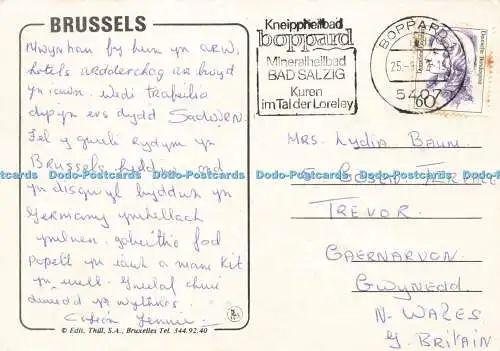 BRUSSELS
Mwynhau fy hun yn arw,
hotels ardderchog a bwyd
yn iawn. Wedi trafeilio
dipyn ers dydd Sadwrn.
Fel y gweli rydym yn
Brussels heddiw ond
yn disgwyl byddwn yn
Germany ymhellach
ymlaen. gobeithio fod
popeth yn iawn a mam Kit
yn well. Gwelaf chwi
diwedd yr wythnos.
Cofion Jennie
© Edit. Thill, S.A., Bruxelles Tel. 344.92.40
Kneippheilbad
boppard
Mineralheilbad
BAD SALZIG
Kuren
im Tal der Loreley
BOPPARD 1
5407
60
Deutsche Bundespost
MRS. LYDIA BAUM
TREVOR
CAERNARVON
GWYNEDD
N. WALES
G. BRITAIN
Dodo-Postcards Dodo-Postcards Dodo-Postcards Dodo-Postcards
Dodo-Postcards Dodo-Postcards Dodo-Postcards Dodo-Postcards